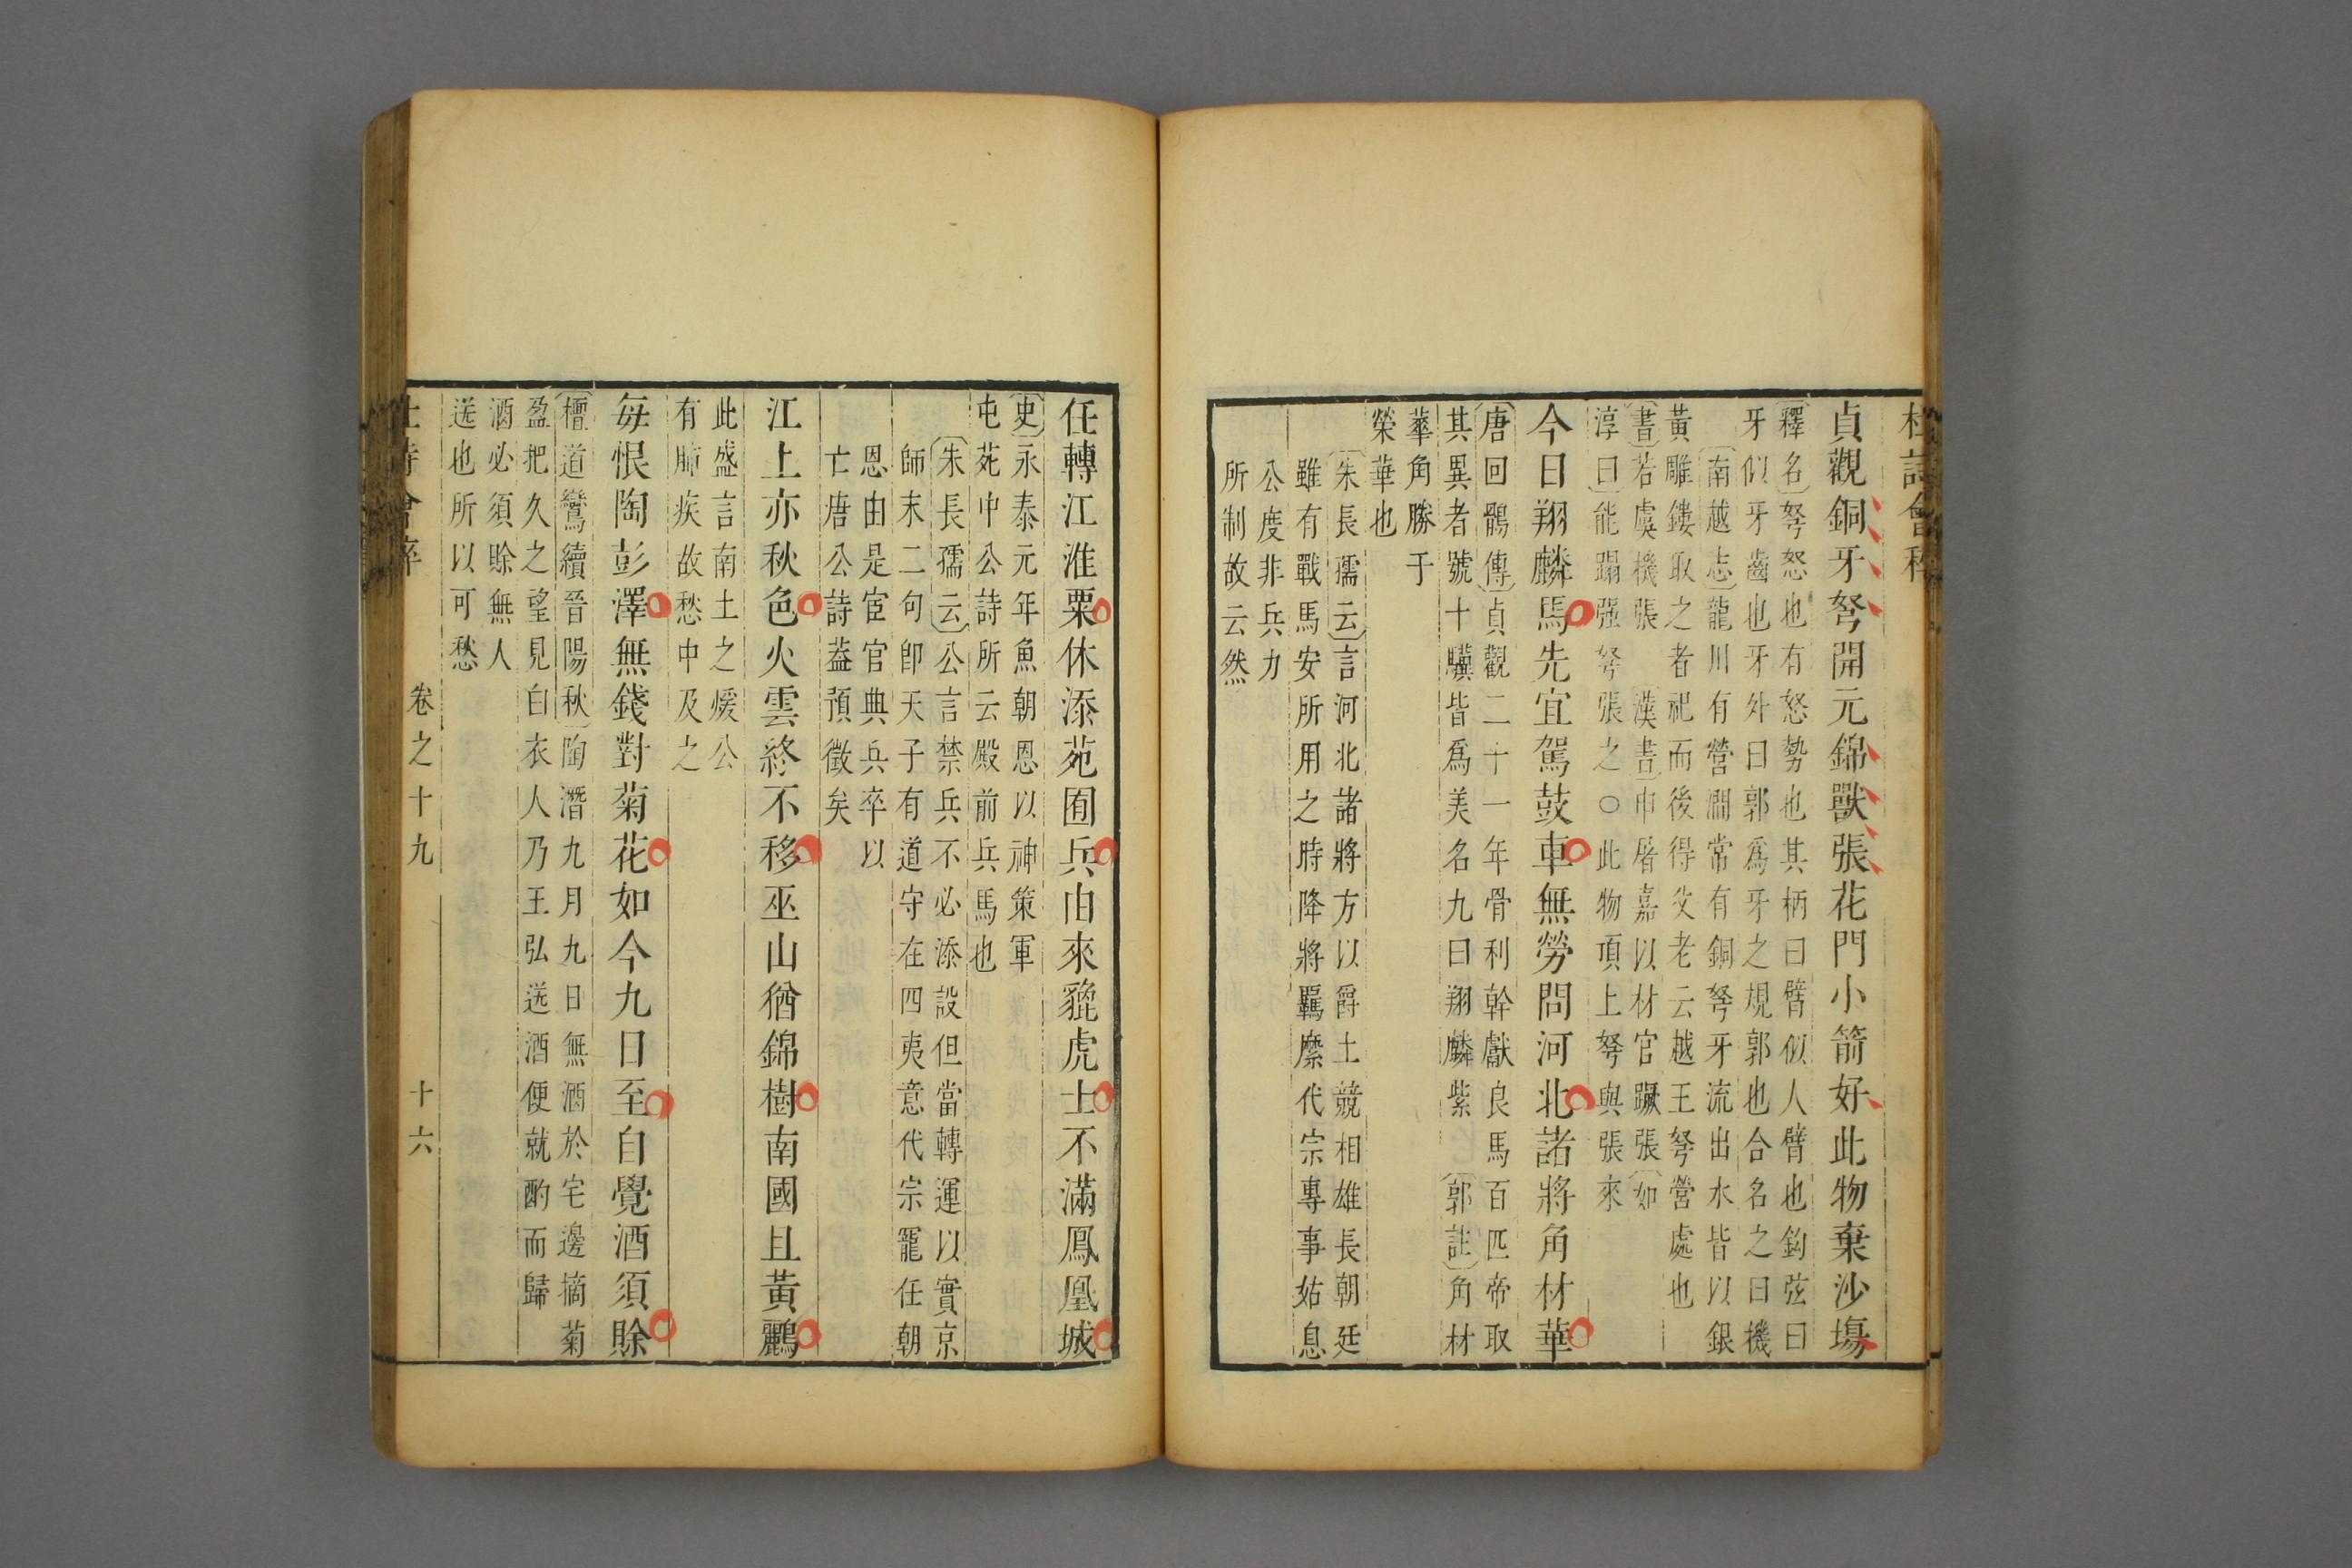 杜詩會稡
貞觀銅牙弩開元錦獸張花門小箭好此物棄沙塲
釋名弩怒也有怒勢也其柄曰臂似人臂也鈎弦曰
牙似牙齒也牙外曰郭爲牙之規郭也合名之曰機
南越志龍川有營澗常有銅弩牙流出水皆以銀
黃雕鏤取之者祀而後得父老云越王弩營處也
書若虞機張 漢書申屠嘉以材官蹶張如
淳曰能蹋强弩張之○此物項上弩與張來
今日翔麟馬先宜駕鼓車無勞問河北諸將角材華
唐回鶻傳貞觀二十一年骨利幹獻良馬百匹帝取
其異者號十驥皆爲美名九曰翔麟紫 郭註角材
華角勝于
榮華也
朱長孺云言河北諸將方以爵土競相雄長朝廷
雖有戰馬安所用之時降將羈縻代宗專事姑息
公度非兵力
所制故云然
任轉江淮粟休添苑囿兵由來貔虎士不滿鳳凰城
史永泰元年魚朝恩以神策軍
屯苑中公詩所云殿前兵馬也
朱長孺云公言禁兵不必添設但當轉運以實京
師末二句卽天子有道守在四夷意代宗寵任朝
恩由是宦官典兵卒以
亡唐公詩蓋預徵矣
江上亦秋色火雲終不移巫山猶錦樹南國且黃鸝
此盛言南土之煖公
有肺疾故愁中及之
每恨陶彭澤無錢對菊花如今九日至自覺酒須賒
檀道鸞續晉陽秋陶潛九月九日無酒於宅邊摘菊
盈把久之望見白衣人乃王弘送酒便就酌而歸
酒必須賒無人
送也所以可愁
杜詩會稡 卷之十九 十六